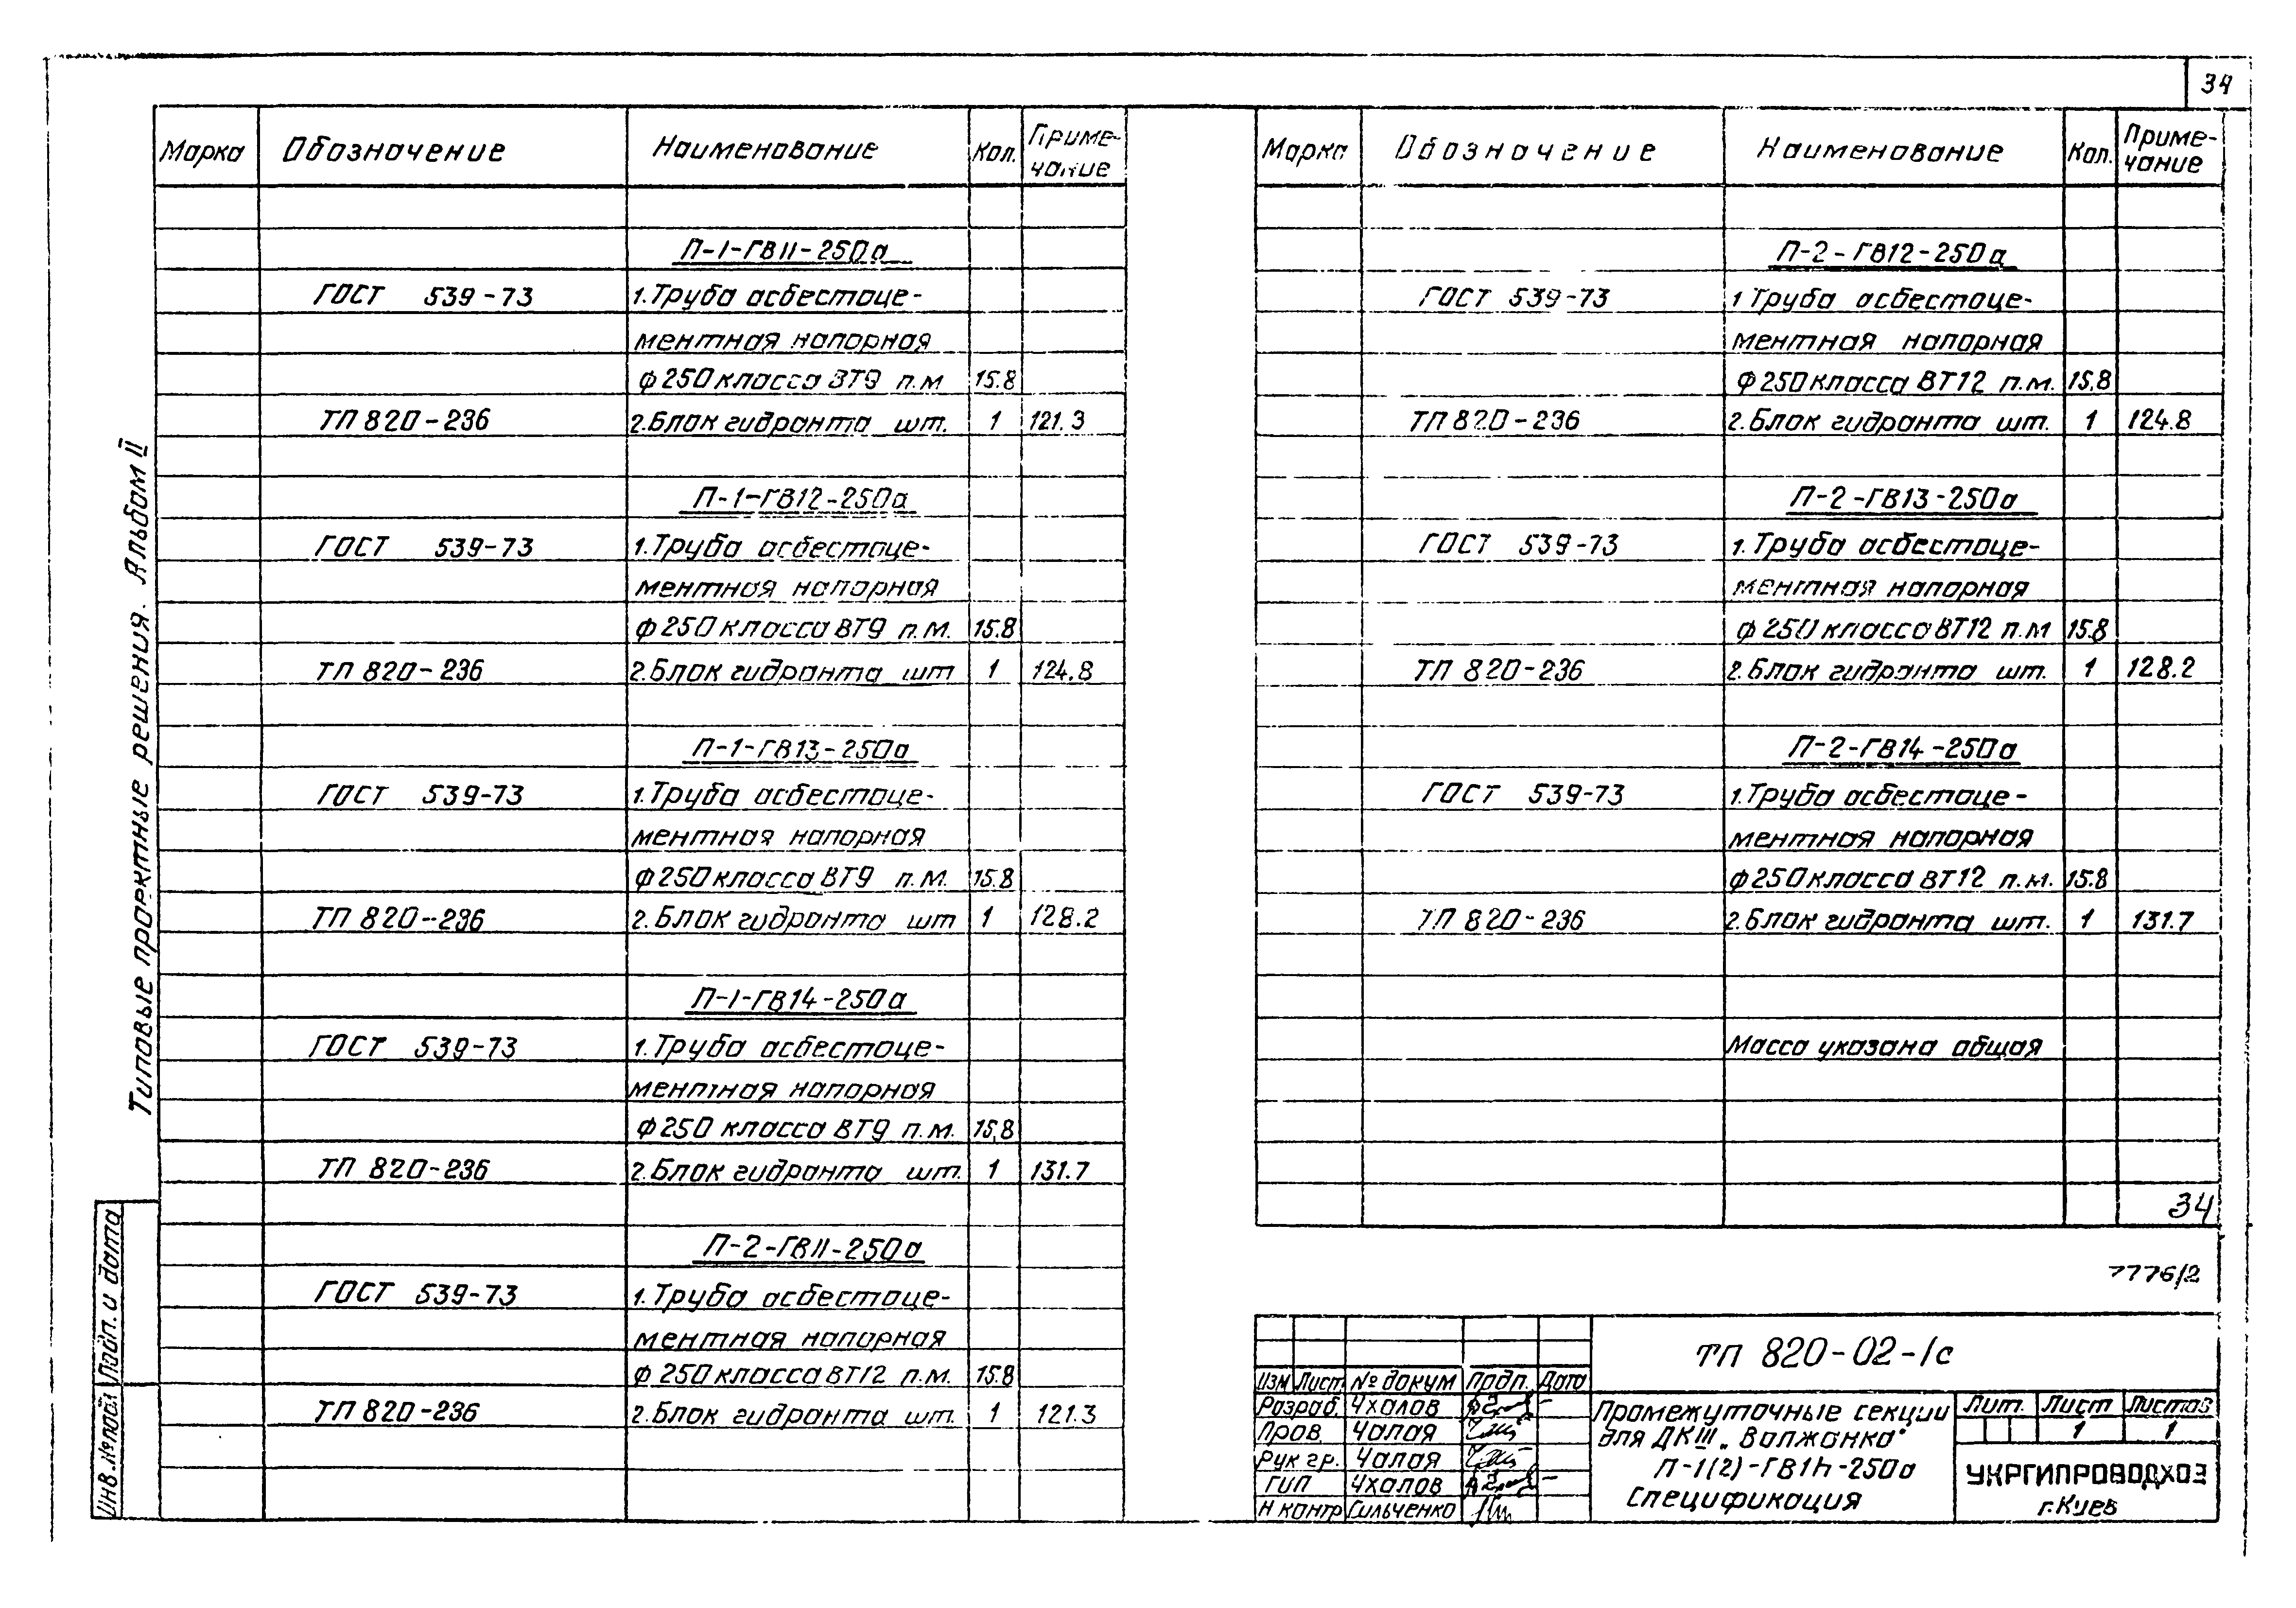 34
Типовые проектные решения. Альбом II
Инв.№подл Подп. и дата
Марка Обозначение Наименование Кол. Примечание
П-1-ГВ11-250а
ГОСТ 539-73 1.Труба асбестоце-
ментная напорная
ф250 класса ВТ9 п.м 15.8
ТП 820-236 2.Блок гидранта шт. 1 121.3
П-1-ГВ12-250а
ГОСТ 539-73 1.Труба асбестоце-
ментная напорная
ф250 класса ВТ9 п.м. 15.8
ТП 820-236 2.Блок гидранта шт 1 124.8
П-1-ГВ13-250а
ГОСТ 539-73 1.Труба асбестоце-
ментная напорная
ф250 класса ВТ9 п.м. 15.8
ТП 820-236 2.Блок гидранта шт 1 128.2
П-1-ГВ14-250а
ГОСТ 539-73 1.Труба асбестоце-
ментная напорная
ф250 класса ВТ9 п.м. 15,8
ТП 820-236 2.Блок гидранта шт. 1 131.7
П-2-ГВ11-250а
ГОСТ 539-73 1.Труба асбестоце-
ментная напорная
ф 250 класса ВТ12 п.м. 15.8
ТП 820-236 2.Блок гидранта шт. 1 121.3
Марка Обозначение Наименование Кол. Примечание
П-2-ГВ12-250а
ГОСТ 539-73 1 Труба асбестоце-
ментная напорная
ф250 класса ВТ12 п.м. 15,8
ТП 820-236 2.Блок гидранта шт. 1 124.8
П-2-ГВ13-250а
ГОСТ 539-73 1.Труба асбестоце-
ментная напорная
ф 250 класса ВТ12 п.м 15.8
ТП 820-236 2.Блок гидранта шт. 1 128.2
П-2-ГВ14-250а
ГОСТ 539-73 1.Труба асбестоце-
ментная напорная
ф250 класса ВТ12 п.м. 15.8
ТП 820-236 2.Блок гидранта шт. 1 131.7
Масса указана общая
34
7776/2
ТП 820-02-1с
Изм Лист № докум Подп. Дата
Разраб. Чхалов
Пров. Чалая
Рук гр. Чалая
ГИП Чхалов
Н контр Сильченко
Промежуточные секции
для ДКШ „Волжанка"
П-1(2)-ГВ1h-250а
Спецификация
Лит. Лист Листов
1 1
УКРГИПРОВОДХОЗ
г.Киев